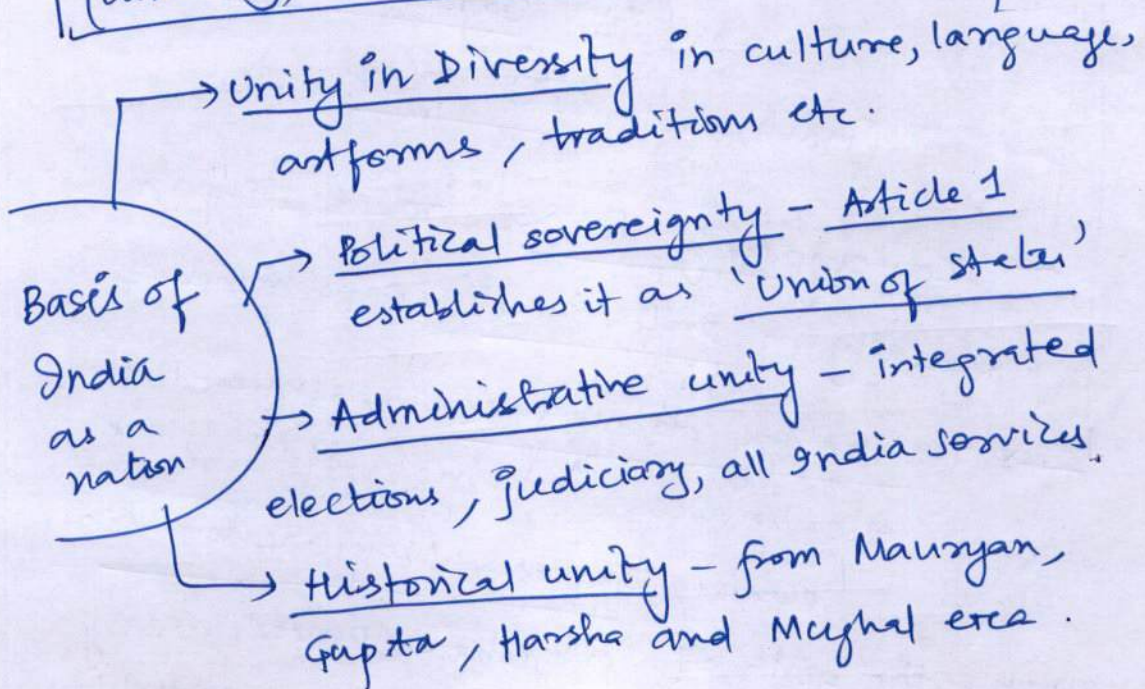 Unity in Diversity in culture, language,
artforms, traditions etc.
Political sovereignty - Article 1
establishes it as 'Union of states'
Administrative unity - integrated
elections, judiciary, all India services.
Historical unity - from Mauryan,
Gupta, Harsha and Mughal era.
Basis of
India
as a
nation